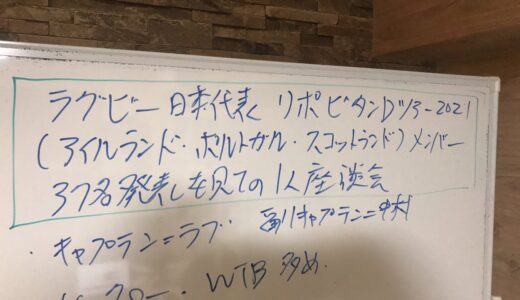 ラグビー日本代表 リポビタンDツアー2021
(アイルランド・ポルトガル・スコットランド)メンバー
37名発表しを見ての1人座談会
・キャプテン=ラブ 副キャプテン=中村
WTB多め.